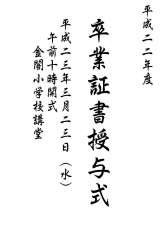 平成二二年度
卒業証書授与式
平成二三年三月二三日（水）
午前十時開式
金閣小学校講堂